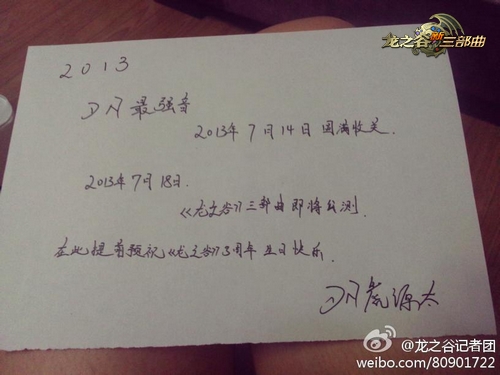 龙之谷新三部曲
2013
DN最强音
2013年7月14日圆满收关.
2013年7月18日.
《龙之谷》三部曲即将公测.
在此提前预祝《龙之谷》3周年生日快乐.
DN
@龙之谷记者团
weibo.com/80901722